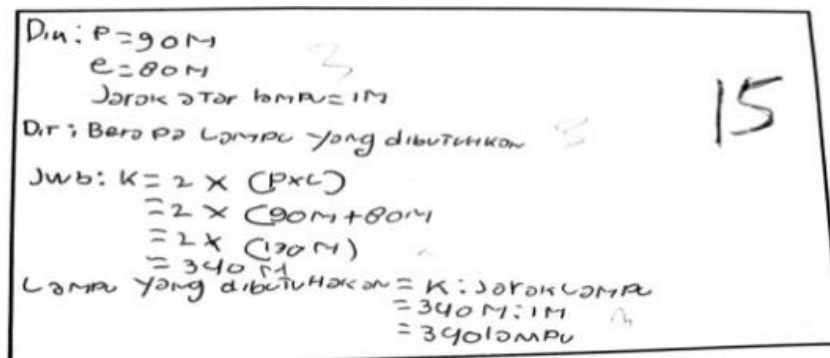 Din: P=90M
e=80M
Jarak atar lampu=1M
Dit: Berapa Lampu yang dibutuhkan
15
Jwb: K= 2 x (PxL)
=2 x (90M+80M
=2x (170M)
= 340 M
Lampu yang dibutuhakan = K: Jarak Lampu
=340 M:1M
= 340 lampu